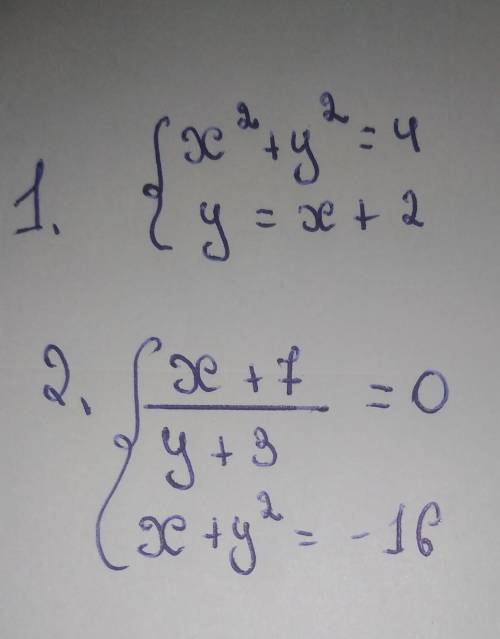 1. { x² + y² = 4
y = x + 2
2. { x + 7 / y + 3 = 0
x + y² = -16